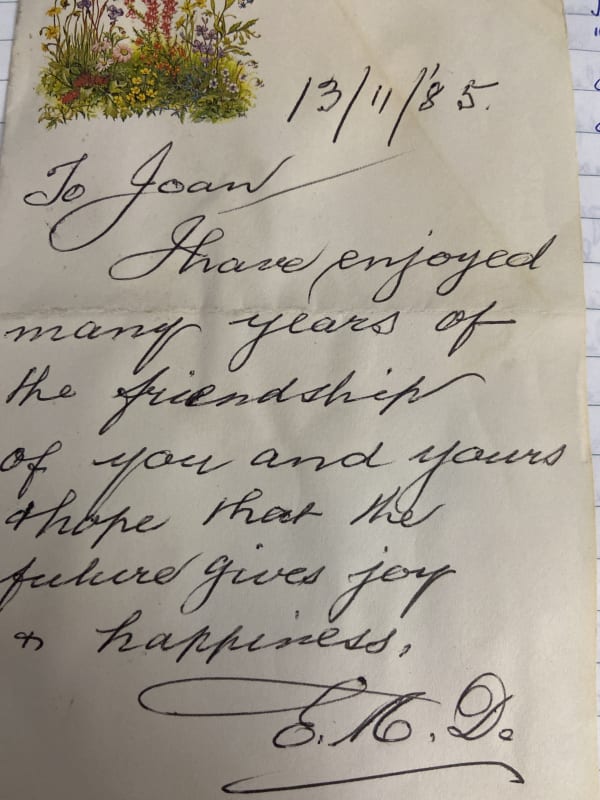 13/11/'85.
To Joan
I have enjoyed
many years of
the friendship
of you and yours
& hope that the
future gives joy
& happiness.
E. M. D.